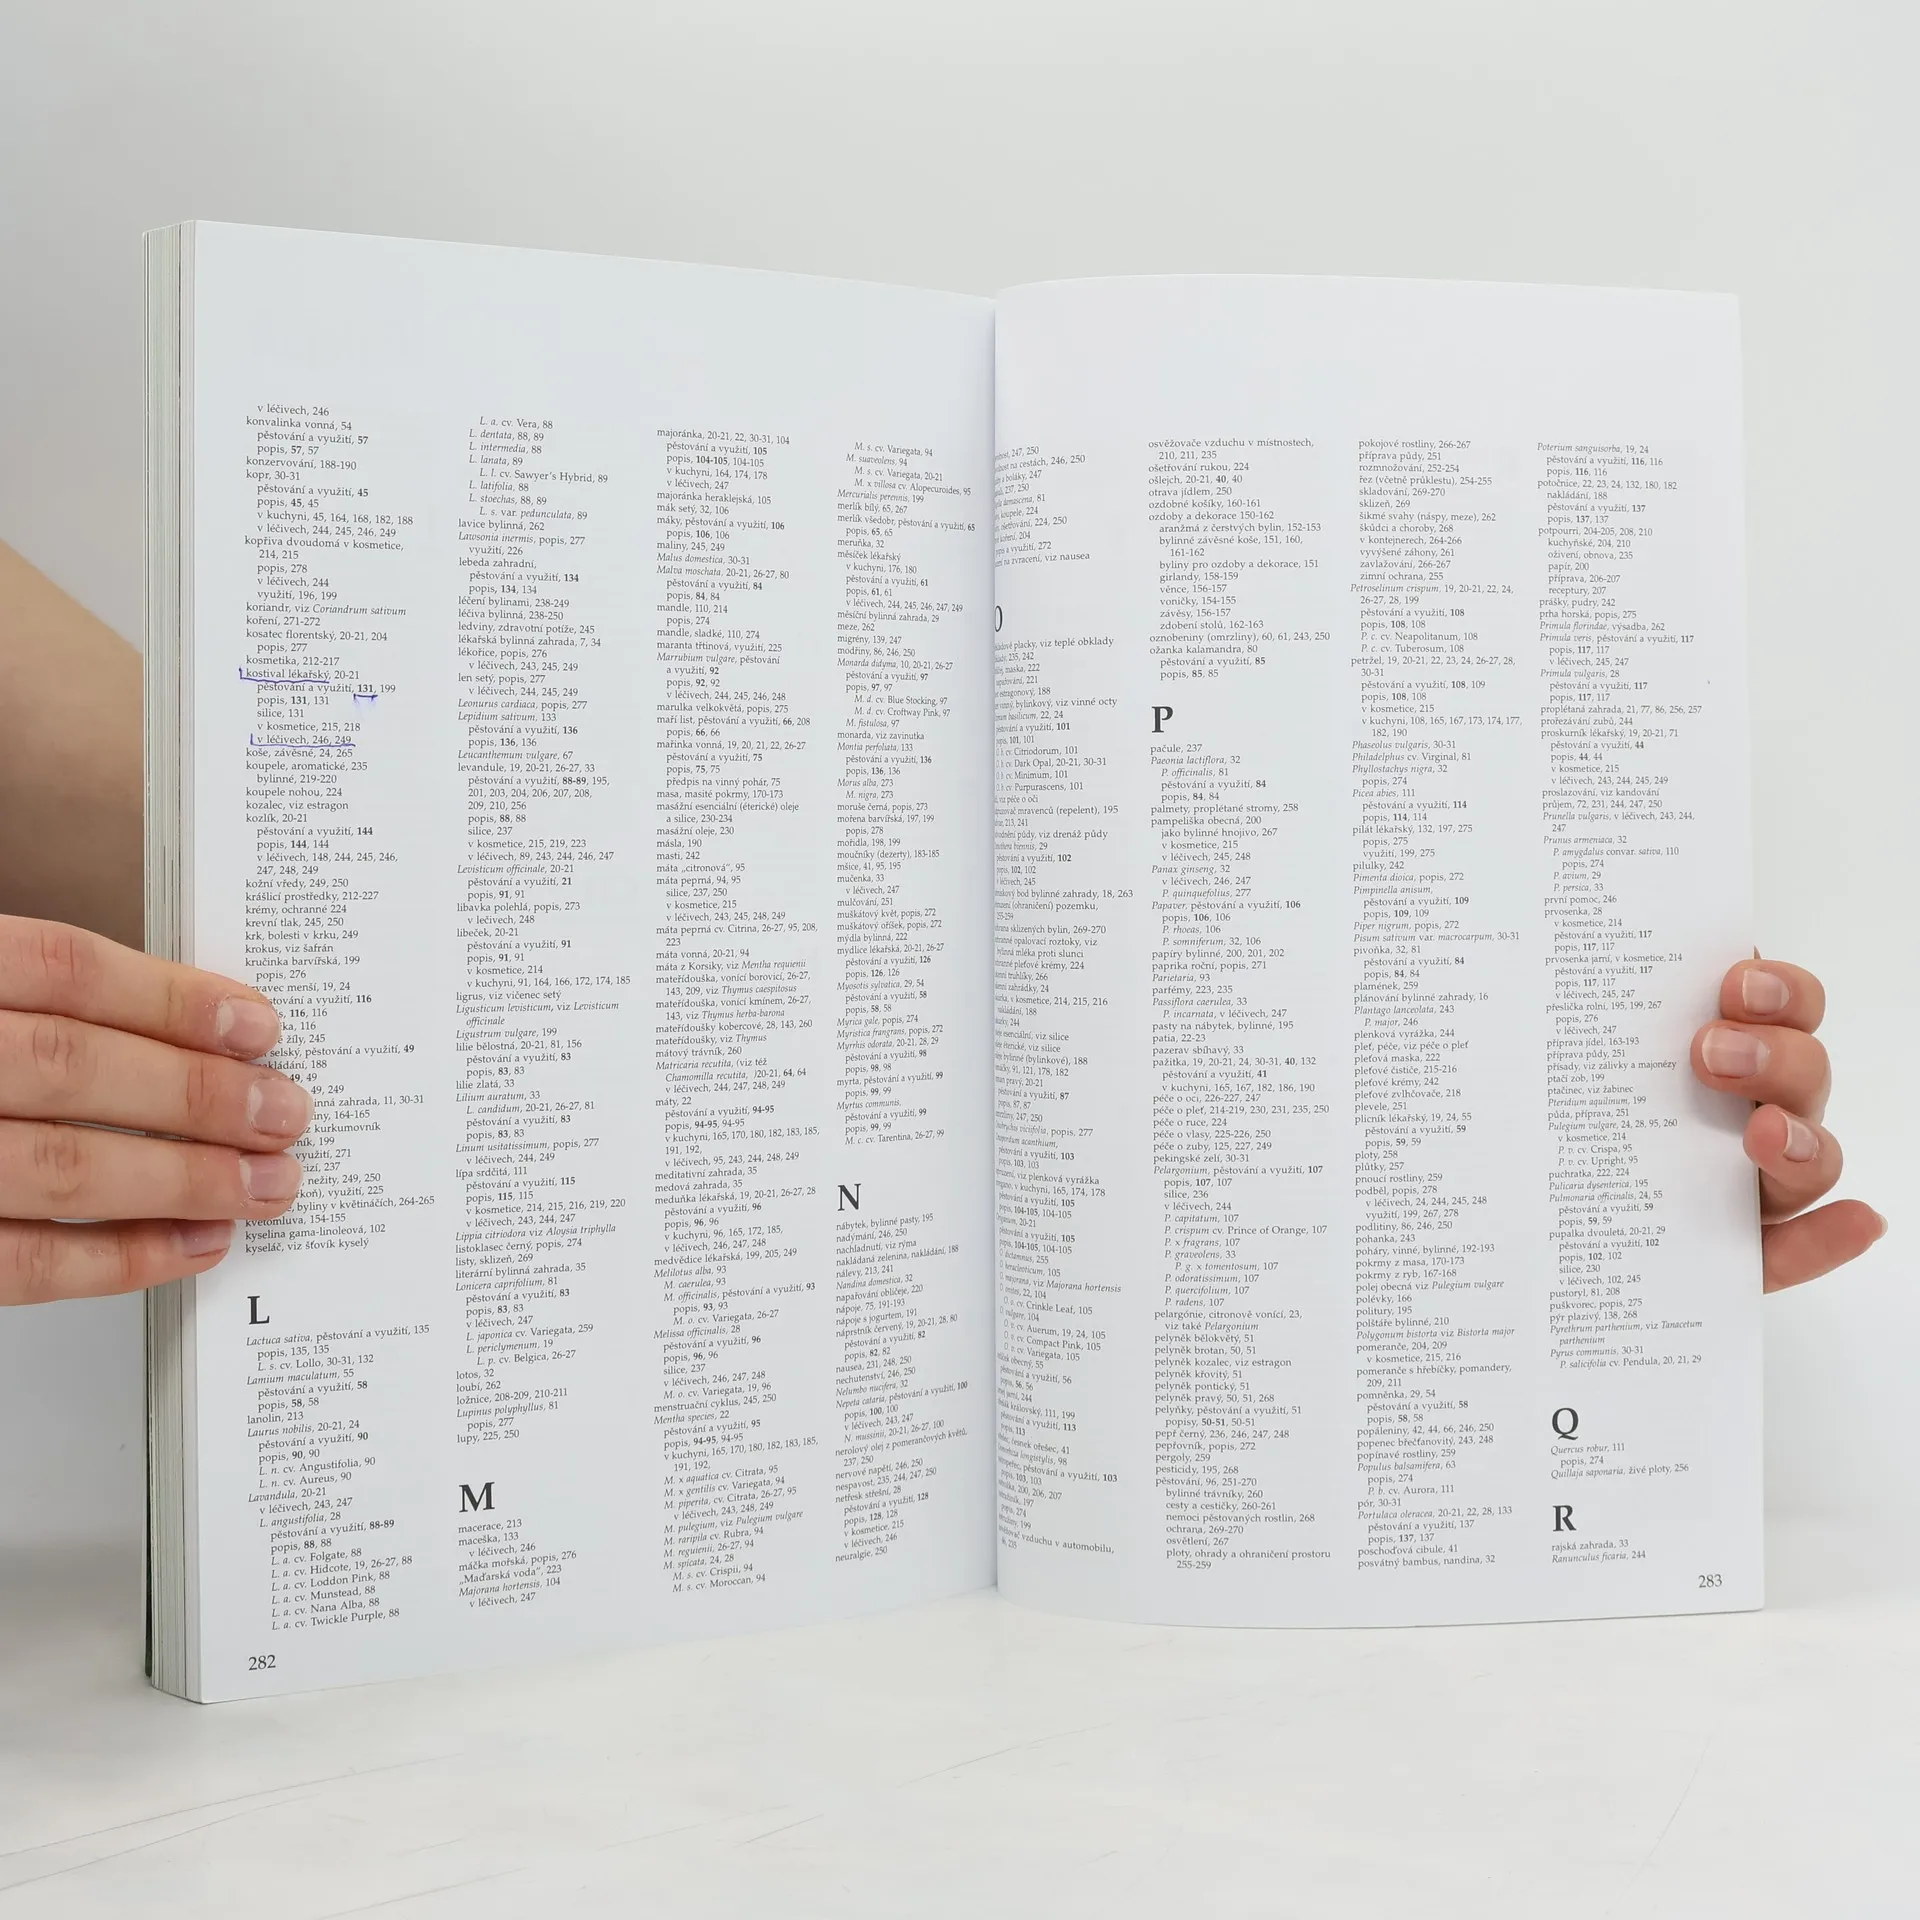 v léčivech, 246
konvalinka vonná, 54
pěstování a využití, 57
popis, 57, 57
konzervování, 188-190
kopr, 30-31
pěstování a využití, 45
popis, 45, 45
v kuchyni, 45, 164, 168, 182, 188
v léčivech, 244, 245, 246, 249
kopřiva dvoudomá v kosmetice,
214, 215
popis, 278
v léčivech, 244
využití, 196, 199
koriandr, viz Coriandrum sativum
koření, 271-272
kosatec florentský, 20-21, 204
popis, 277
kosmetika, 212-217
kostival lékařský, 20-21
pěstování a využití, 131, 199
popis, 131, 131
silice, 131
v kosmetice, 215, 218
v léčivech, 246, 249
koše, závěsné, 24, 265
koupele, aromatické, 235
bylinné, 219-220
koupele nohou, 224
kozalec, viz estragon
kozlík, 20-21
pěstování a využití, 144
popis, 144, 144
v léčivech, 148, 244, 245, 246,
247, 248, 249
kožní vředy, 249, 250
krášlicí prostředky, 212-227
krémy, ochranné 224
krevní tlak, 245, 250
krk, bolesti v krku, 249
krokus, viz šafrán
kručinka barvířská, 199
popis, 276
menší, 19, 24
a využití, 116
116, 116
116
žíly, 245
selský, pěstování a využití, 49
nakládání, 188
49, 49
49, 249
zahrada, 11, 30-31
164-165
kurkumovník
199
využití, 271
237
nežity, 249, 250
využití, 225
byliny v květináčích, 264-265
květomluva, 154-155
kyselina gama-linoleová, 102
kyseláč, viz šťovík kyselý
L
Lactuca sativa, pěstování a využití, 135
popis, 135, 135
L. s. cv. Lollo, 30-31, 132
Lamium maculatum, 55
pěstování a využití, 58
popis, 58, 58
lanolin, 213
Laurus nobilis, 20-21, 24
pěstování a využití, 90
popis, 90, 90
L. n. cv. Angustifolia, 90
L. n. cv. Aureus, 90
Lavandula, 20-21
v léčivech, 243, 247
L. angustifolia, 28
pěstování a využití, 88-89
popis, 88, 88
L. a. cv. Folgate, 88
L. a. cv. Hidcote, 19, 26-27, 88
L. a. cv. Loddon Pink, 88
L. a. cv. Munstead, 88
L. a. cv. Nana Alba, 88
L. a. cv. Twickle Purple, 88
282
L. a. cv. Vera, 88
L. dentata, 88, 89
L. intermedia, 88
L. lanata, 89
L. l. cv. Sawyer's Hybrid, 89
L. latifolia, 88
L. stoechas, 88, 89
L. s. var. pedunculata, 89
lavice bylinná, 262
Lawsonia inermis, popis, 277
využití, 226
lebeda zahradní,
pěstování a využití, 134
popis, 134, 134
léčení bylinami, 238-249
léčiva bylinná, 238-250
ledviny, zdravotní potíže, 245
lékařská bylinná zahrada, 7, 34
lékořice, popis, 276
v léčivech, 243, 245, 249
len setý, popis, 277
v léčivech, 244, 245, 249
Leonurus cardiaca, popis, 277
Lepidium sativum, 133
pěstování a využití, 136
popis, 136, 136
Leucanthemum vulgare, 67
levandule, 19, 20-21, 26-27, 33
pěstování a využití, 88-89, 195,
201, 203, 204, 206, 207, 208,
209, 210, 256
popis, 88, 88
silice, 237
v kosmetice, 215, 219, 223
v léčivech, 89, 243, 244, 246, 247
Levisticum officinale, 20-21
pěstování a využití, 21
popis, 91, 91
libavka polehlá, popis, 273
v léčivech, 248
libeček, 20-21
pěstování a využití, 91
popis, 91, 91
v kosmetice, 214
v kuchyni, 91, 164, 166, 172, 174, 185
ligrus, viz vičenec setý
Ligusticum levisticum, viz Levisticum
officinale
Ligustrum vulgare, 199
lilie bělostná, 20-21, 81, 156
pěstování a využití, 83
popis, 83, 83
lilie zlatá, 33
Lilium auratum, 33
L. candidum, 20-21, 26-27, 81
pěstování a využití, 83
popis, 83, 83
Linum usitatissimum, popis, 277
v léčivech, 244, 249
lípa srdčitá, 111
pěstování a využití, 115
popis, 115, 115
v kosmetice, 214, 215, 216, 219, 220
v léčivech, 243, 244, 247
Lippia citriodora viz Aloysia triphylla
listoklasec černý, popis, 274
listy, sklizeň, 269
literární bylinná zahrada, 35
Lonicera caprifolium, 81
pěstování a využití, 83
popis, 83, 83
v léčivech, 247
L. japonica cv. Variegata, 259
L. periclymenum, 19
L. p. cv. Belgica, 26-27
lotos, 32
loubí, 262
ložnice, 208-209, 210-211
Lupinus polyphyllus, 81
popis, 277
lupy, 225, 250
M
macerace, 213
maceška, 133
v léčivech, 246
máčka mořská, popis, 276
„Maďarská voda", 223
Majorana hortensis, 104
v léčivech, 247
majoránka, 20-21, 22, 30-31, 104
pěstování a využití, 105
popis, 104-105, 104-105
v kuchyni, 164, 174, 178
v léčivech, 247
majoránka heraklejská, 105
mák setý, 32, 106
máky, pěstování a využití, 106
popis, 106, 106
maliny, 245, 249
Malus domestica, 30-31
Malva moschata, 20-21, 26-27, 80
pěstování a využití, 84
popis, 84, 84
mandle, 110, 214
popis, 274
mandle, sladké, 110, 274
maranta třtinová, využití, 225
Marrubium vulgare, pěstování
a využití, 92
popis, 92, 92
v léčivech, 244, 245, 246, 248
marulka velkokvětá, popis, 275
maří list, pěstování a využití, 66, 208
popis, 66, 66
mařinka vonná, 19, 20, 21, 22, 26-27
pěstování a využití, 75
popis, 75, 75
předpis na vinný pohár, 75
masa, masité pokrmy, 170-173
masážní esenciální (éterické) oleje
a silice, 230-234
masážní oleje, 230
másla, 190
masti, 242
máta „citronová", 95
máta peprná, 94, 95
silice, 237, 250
v kosmetice, 215
v léčivech, 243, 245, 248, 249
máta peprná cv. Citrina, 26-27, 95, 208,
223
máta vonná, 20-21, 94
máta z Korsiky, viz Mentha requienii
mateřídouška, vonící borovicí, 26-27,
143, 209, viz Thymus caespitosus
mateřídouška, vonící kmínem, 26-27,
143, viz Thymus herba-barona
mateřídoušky kobercové, 28, 143, 260
mateřídoušky, viz Thymus
mátový trávník, 260
Matricaria recutita, (viz též
Chamomilla recutita, )20-21, 64, 64
v léčivech, 244, 247, 248, 249
máty, 22
pěstování a využití, 94-95
popis, 94-95, 94-95
v kuchyni, 165, 170, 180, 182, 183, 185,
191, 192,
v léčivech, 95, 243, 244, 248, 249
meditativní zahrada, 35
medová zahrada, 35
meduňka lékařská, 19, 20-21, 26-27, 28
pěstování a využití, 96
popis, 96, 96
v kuchyni, 96, 165, 172, 185,
v léčivech, 246, 247, 248
medvědice lékařská, 199, 205, 249
Melilotus alba, 93
M. caerulea, 93
M. officinalis, pěstování a využití, 93
popis, 93, 93
M. o. cv. Variegata, 26-27
Melissa officinalis, 28
pěstování a využití, 96
popis, 96, 96
silice, 237
v léčivech, 246, 247, 248
M. o. cv. Variegata, 19, 96
menstruační cyklus, 245, 250
Mentha species, 22
pěstování a využití, 95
popis, 94-95, 94-95
v kuchyni, 165, 170, 180, 182, 183, 185,
191, 192,
M. x aquatica cv. Citrata, 95
M. x gentilis cv. Variegata, 94
M. piperita, cv. Citrata, 26-27, 95
v léčivech, 243, 248, 249
M. pulegium, viz Pulegium vulgare
M. raripila cv. Rubra, 94
M. reguienii, 26-27, 94
M. spicata, 24, 28
M. s. cv. Crispii, 94
M. s. cv. Moroccan, 94
M. s. cv. Variegata, 94
M. suaveolens, 94
M. s. cv. Variegata, 20-21
M. x villosa cv. Alopecuroides, 95
Mercurialis perennis, 199
merlík bílý, 65, 267
merlík všedobr, pěstování a využití, 65
popis, 65, 65
meruňka, 32
měsíček lékařský
v kuchyni, 176, 180
pěstování a využití, 61
popis, 61, 61
v léčivech, 244, 245, 246, 247, 249
měsíční bylinná zahrada, 29
meze, 262
migrény, 139, 247
modřiny, 86, 246, 250
Monarda didyma, 10, 20-21, 26-27
pěstování a využití, 97
popis, 97, 97
M. d. cv. Blue Stocking, 97
M. d. cv. Croftway Pink, 97
M. fistulosa, 97
monarda, viz zavinutka
Montia perfoliata, 133
pěstování a využití, 136
popis, 136, 136
Morus alba, 273
M. nigra, 273
moruše černá, popis, 273
mořena barvířská, 197, 199
popis, 278
mořidla, 198, 199
moučníky (dezerty), 183-185
mšice, 41, 95, 195
mučenka, 33
v léčivech, 247
mulčování, 251
muškátový květ, popis, 272
muškátový oříšek, popis, 272
mýdla bylinná, 222
mydlice lékařská, 20-21, 26-27
pěstování a využití, 126
popis, 126, 126
Myosotis sylvatica, 29, 54
pěstování a využití, 58
popis, 58, 58
Myrica gale, popis, 274
Myristica frangrans, popis, 272
Myrrhis odorata, 20-21, 28, 29
pěstování a využití, 98
popis, 98, 98
myrta, pěstování a využití, 99
popis, 99, 99
Myrtus communis,
pěstování a využití, 99
popis, 99, 99
M. c. cv. Tarentina, 26-27, 99
N
nábytek, bylinné pasty, 195
nadýmání, 246, 250
nachladnutí, viz rýma
nakládaná zelenina, nakládání, 188
nálevy, 213, 241
Nandina domestica, 32
napařování obličeje, 220
nápoje, 75, 191-193
nápoje s jogurtem, 191
náprstník červený, 19, 20-21, 28, 80
pěstování a využití, 82
popis, 82, 82
nausea, 231, 248, 250
nechutenství, 246, 250
Nelumbo nucifera, 32
Nepeta cataria, pěstování a využití, 100
popis, 100, 100
v léčivech, 243, 247
N. mussinii, 20-21, 26-27, 100
nerolový olej z pomerančových květů,
237, 250
nervové napětí, 246, 250
nespavost, 235, 244, 247, 250
netřesk střešní, 28
pěstování a využití, 128
popis, 128, 128
v kosmetice, 215
v léčivech, 246
neuralgie, 250
247, 250
na cestách, 246, 250
a boláky, 247
237, 250
damascena, 81
koupele, 224
ošetřování, 224, 250
koření, 204
a využití, 272
na zvracení, viz nausea
O
placky, viz teplé obklady
235, 242
maska, 222
221
estragonový, 188
bylinkový, viz vinné octy
basilicum, 22, 24
pěstování a využití, 101
popis, 101, 101
O. b. cv. Citriodorum, 101
O. b. cv. Dark Opal, 20-21, 30-31
O. b. cv. Minimum, 101
O. b. cv. Purpurascens, 101
viz péče o oči
mravenců (repelent), 195
213, 241
půdy, viz drenáž půdy
biennis, 29
pěstování a využití, 102
popis, 102, 102
v léčivech, 245
bod bylinné zahrady, 18, 263
(ohraničení) pozemku,
255-259
sklizených bylin, 269-270
opalovací roztoky, viz
bylinná mléka proti slunci
pleťové krémy, 224
truhlíky, 266
zahrádky, 24
v kosmetice, 214, 215, 216
nakládání, 188
244
esenciální, viz silice
éterické, viz silice
bylinné (bylinkové), 188
91, 121, 178, 182
pravý, 20-21
pěstování a využití, 87
popis, 87, 87
247, 250
viciifolia, popis, 277
acanthium,
pěstování a využití, 103
popis, 103, 103
viz plenková vyrážka
v kuchyni, 165, 174, 178
pěstování a využití, 105
popis, 104-105, 104-105
Origanum, 20-21
pěstování a využití, 105
popis, 104-105, 104-105
O. dictamnus, 255
O. heracleoticum, 105
O. majorana, viz Majorana hortensis
O. onites, 22, 104
O. o. cv. Crinkle Leaf, 105
O. vulgare, 104
O. v. cv. Auerum, 19, 24, 105
O. v. cv. Compact Pink, 105
O. v. cv. Variegata, 105
obecný, 55
pěstování a využití, 56
popis, 56, 56
jarní, 244
královský, 111, 199
pěstování a využití, 113
popis, 113
česnek ořešec, 41
longistylis, 98
pěstování a využití, 103
popis, 103, 103
200, 206, 207
197
popis, 274
199
vzduchu v automobilu,
235
osvěžovače vzduchu v místnostech,
210, 211, 235
ošetřování rukou, 224
ošlejch, 20-21, 40, 40
otrava jídlem, 250
ozdobné košíky, 160-161
ozdoby a dekorace 150-162
aranžmá z čerstvých bylin, 152-153
bylinné závěsné koše, 151, 160,
161-162
byliny pro ozdoby a dekorace, 151
girlandy, 158-159
věnce, 156-157
voničky, 154-155
závěsy, 156-157
zdobení stolů, 162-163
oznobeniny (omrzliny), 60, 61, 243, 250
ožanka kalamandra, 80
pěstování a využití, 85
popis, 85, 85
P
pačule, 237
Paeonia lactiflora, 32
P. officinalis, 81
pěstování a využití, 84
popis, 84, 84
palmety, proplétané stromy, 258
pampeliška obecná, 200
jako bylinné hnojivo, 267
v kosmetice, 215
v léčivech, 245, 248
Panax ginseng, 32
v léčivech, 246, 247
P. quinquefolius, 277
Papaver, pěstování a využití, 106
popis, 106, 106
P. rhoeas, 106
P. somniferum, 32, 106
papíry bylinné, 200, 201, 202
paprika roční, popis, 271
Parietaria, 93
parfémy, 223, 235
Passiflora caerulea, 33
P. incarnata, v léčivech, 247
pasty na nábytek, bylinné, 195
patia, 22-23
pazerav sbíhavý, 33
pažitka, 19, 20-21, 24, 30-31, 40, 132
pěstování a využití, 41
v kuchyni, 165, 167, 182, 186, 190
péče o oči, 226-227, 247
péče o pleť, 214-219, 230, 231, 235, 250
péče o ruce, 224
péče o vlasy, 225-226, 250
péče o zuby, 125, 227, 249
pekingské zelí, 30-31
Pelargonium, pěstování a využití, 107
popis, 107, 107
silice, 236
v léčivech, 244
P. capitatum, 107
P. crispum cv. Prince of Orange, 107
P. x fragrans, 107
P. graveolens, 33
P. g. x tomentosum, 107
P. odoratissimum, 107
P. quercifolium, 107
P. radens, 107
pelargónie, citronově vonící, 23,
viz také Pelargonium
pelyněk bělokvětý, 51
pelyněk brotan, 50, 51
pelyněk kozalec, viz estragon
pelyněk křovitý, 51
pelyněk pontický, 51
pelyněk pravý, 50, 51, 268
pelyňky, pěstování a využití, 51
popisy, 50-51, 50-51
pepř černý, 236, 246, 247, 248
pepřovník, popis, 272
pergoly, 259
pesticidy, 195, 268
pěstování, 96, 251-270
bylinné trávníky, 260
cesty a cestičky, 260-261
nemoci pěstovaných rostlin, 268
ochrana, 269-270
osvětlení, 267
ploty, ohrady a ohraničení prostoru
255-259
pokojové rostliny, 266-267
příprava půdy, 251
rozmnožování, 252-254
řez (včetně průklestu), 254-255
skladování, 269-270
sklizeň, 269
šikmé svahy (náspy, meze), 262
škůdci a choroby, 268
v kontejnerech, 264-266
vyvýšené záhony, 261
zavlažování, 266-267
zimní ochrana, 255
Petroselinum crispum, 19, 20-21, 22, 24,
26-27, 28, 199
pěstování a využití, 108
popis, 108, 108
P. c. cv. Neapolitanum, 108
P. c. cv. Tuberosum, 108
petržel, 19, 20-21, 22, 23, 24, 26-27, 28,
30-31
pěstování a využití, 108, 109
popis, 108, 108
v kosmetice, 215
v kuchyni, 108, 165, 167, 173, 174, 177,
182, 190
Phaseolus vulgaris, 30-31
Philadelphus cv. Virginal, 81
Phyllostachys nigra, 32
popis, 274
Picea abies, 111
pěstování a využití, 114
popis, 114, 114
pilát lékařský, 132, 197, 275
popis, 275
využití, 199, 275
pilulky, 242
Pimenta dioica, popis, 272
Pimpinella anisum,
pěstování a využití, 109
popis, 109, 109
Piper nigrum, popis, 272
Pisum sativum var. macrocarpum, 30-31
pivoňka, 32, 81
pěstování a využití, 84
popis, 84, 84
plamének, 259
plánování bylinné zahrady, 16
Plantago lanceolata, 243
P. major, 246
plenková vyrážka, 244
pleť, péče, viz péče o pleť
pleťová maska, 222
pleťové čističe, 215-216
pleťové krémy, 242
pleťové zvlhčovače, 218
plevele, 251
plicník lékařský, 19, 24, 55
pěstování a využití, 59
popis, 59, 59
ploty, 258
plůtky, 257
pnoucí rostliny, 259
podběl, popis, 278
v léčivech, 24, 244, 245, 248
využití, 199, 267, 278
podlitiny, 86, 246, 250
pohanka, 243
poháry, vinné, bylinné, 192-193
pokrmy z masa, 170-173
pokrmy z ryb, 167-168
polej obecná viz Pulegium vulgare
polévky, 166
politury, 195
polštáře bylinné, 210
Polygonum bistorta viz Bistorta major
pomeranče, 204, 209
v kosmetice, 215, 216
pomeranče s hřebíčky, pomandery,
209, 211
pomněnka, 29, 54
pěstování a využití, 58
popis, 58, 58
popáleniny, 42, 44, 66, 246, 250
popenec břečťanovitý, 243, 248
popínavé rostliny, 259
Populus balsamifera, 63
popis, 274
P. b. cv. Aurora, 111
pór, 30-31
Portulaca oleracea, 20-21, 22, 28, 133
pěstování a využití, 137
popis, 137, 137
poschoďová cibule, 41
posvátný bambus, nandina, 32
Poterium sanguisorba, 19, 24
pěstování a využití, 116, 116
popis, 116, 116
potočnice, 22, 23, 24, 132, 180, 182
nakládání, 188
pěstování a využití, 137
popis, 137, 137
potpourri, 204-205, 208, 210
kuchyňské, 204, 210
oživení, obnova, 235
papír, 200
příprava, 206-207
receptury, 207
prášky, pudry, 242
prha horská, popis, 275
Primula florindae, výsadba, 262
Primula veris, pěstování a využití, 117
popis, 117, 117
v léčivech, 245, 247
Primula vulgaris, 28
pěstování a využití, 117
popis, 117, 117
proplétaná zahrada, 21, 77, 86, 256, 257
prořezávání zubů, 244
proskurník lékařský, 19, 20-21, 71
pěstování a využití, 44
popis, 44, 44
v kosmetice, 215
v léčivech, 243, 244, 245, 249
proslazování, viz kandování
průjem, 72, 231, 244, 247, 250
Prunella vulgaris, v léčivech, 243, 244,
247
Prunus armeniaca, 32
P. amygdalus convar. sativa, 110
popis, 274
P. avium, 29
P. persica, 33
první pomoc, 246
prvosenka, 28
v kosmetice, 214
pěstování a využití, 117
popis, 117, 117
prvosenka jarní, v kosmetice, 214
pěstování a využití, 117
popis, 117, 117
v léčivech, 245, 247
přeslička rolní, 195, 199, 267
popis, 276
v léčivech, 247
příprava jídel, 163-193
příprava půdy, 251
přísady, viz zálivky a majonézy
ptačí zob, 199
ptačinec, viz žabinec
Pteridium aquilinum, 199
půda, příprava, 251
Pulegium vulgare, 24, 28, 95, 260
v kosmetice, 214
P. v. cv. Crispa, 95
P. v. cv. Upright, 95
puchratka, 222, 224
Pulicaria dysenterica, 195
Pulmonaria officinalis, 24, 55
pěstování a využití, 59
popis, 59, 59
pupalka dvouletá, 20-21, 29
pěstování a využití, 102
popis, 102, 102
silice, 230
v léčivech, 102, 245
pustoryl, 81, 208
puškvorec, popis, 275
pýr plazivý, 138, 268
Pyrethrum parthenium, viz Tanacetum
parthenium
Pyrus communis, 30-31
P. salicifolia cv. Pendula, 20, 21, 29
Q
Quercus robur, 111
popis, 274
Quillaja saponaria, živé ploty, 256
R
rajská zahrada, 33
Ranunculus ficaria, 244
283